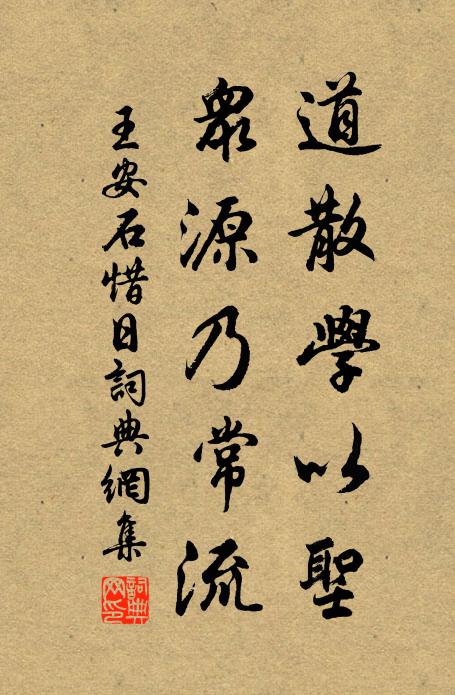 道散學以聖
衆源乃常流
王安石惜日詞典網集
詞典網印